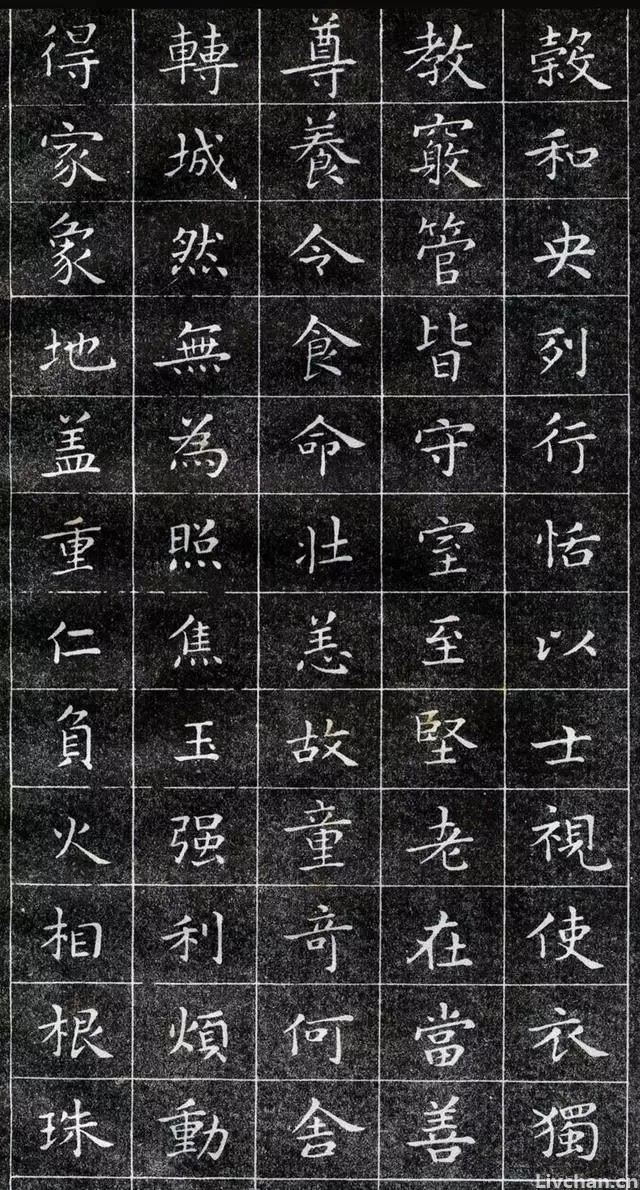 穀和央列行恬以士視使衣獨
教竅管皆守室至堅老在當善
尊養令食命壯恙故童奇何舍
轉城然無為照焦玉强利煩動
得家象地盖重仁負火相根珠
Livchan.cn